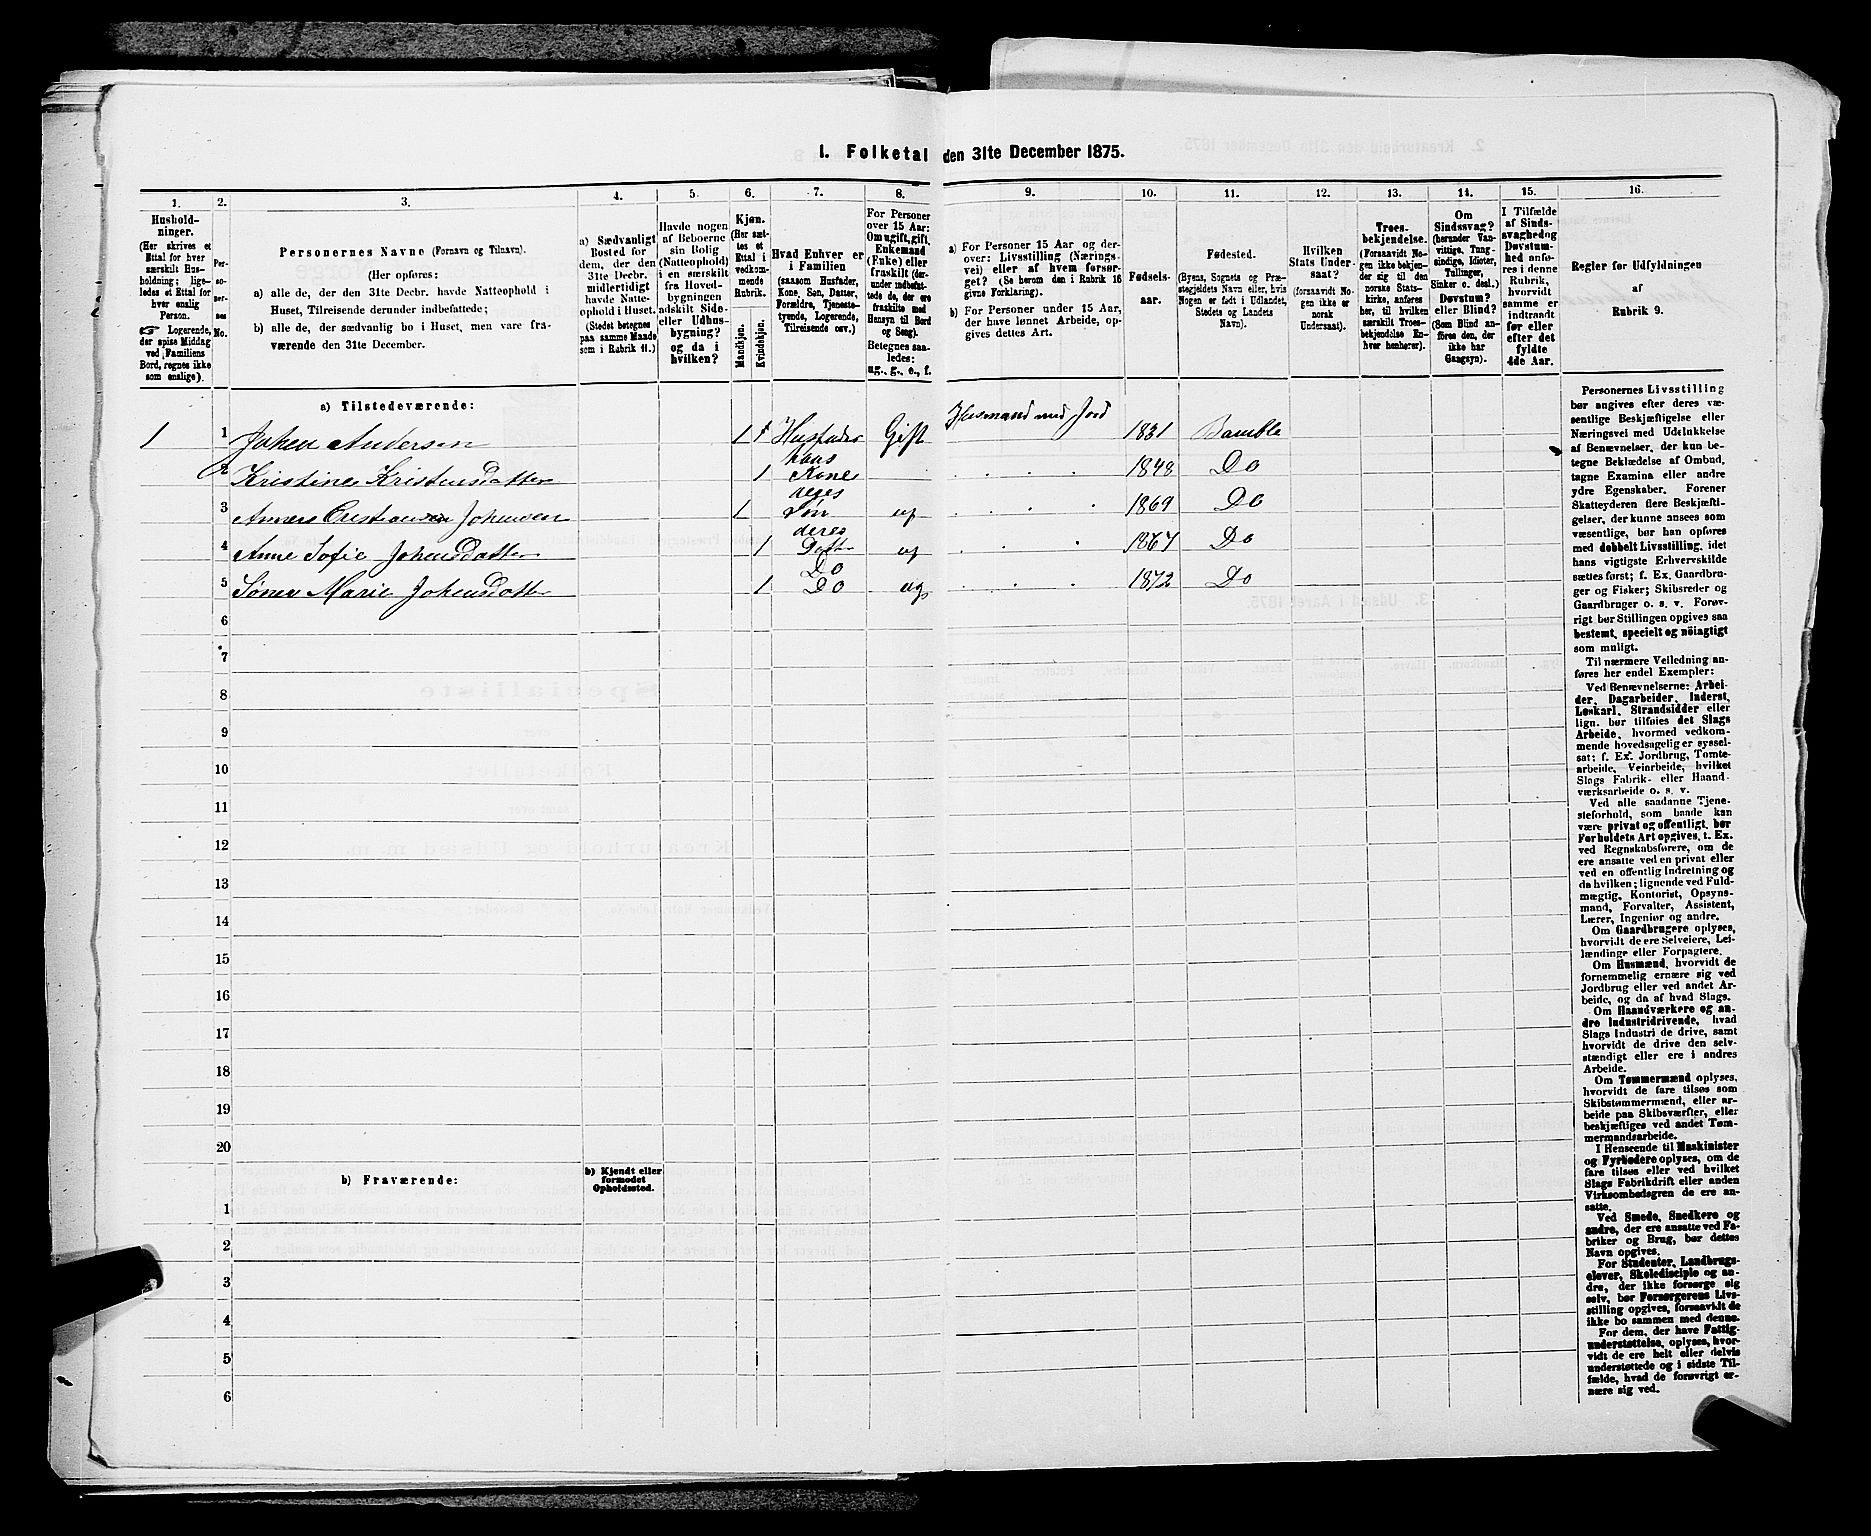 1. Folketal den 31te December 1875.
1. 2. 3. 4. 5. 6. 7. 8. 9. 10. 11. 12. 13. 14. 15. 16.
Hushold-
ninger.
(Her skrives et
Ettal for hver
særskilt Hus-
holdning; lige-
ledes et Ettal for
hver enslig
Person.
☞ Logerende,
der spise Middag
ved Familiens
Bord, regnes ikke
som enslige).
Per-
so-
ner-
nes
No.
Personernes Navne (Fornavn og Tilnavn).
(Her opføres:
a) alle de, der den 31te Decbr. havde Natteophold i
Huset, Tilreisende derunder indbefattede;
b) alle de, der sædvanlig bo i Huset, men vare fra-
værende den 31te December.
a) Sædvanligt
Bosted for
dem, der den
31te Decbr.
midlertidigt
havde Natte-
ophold i Huset.
(Stedet betegnes
paa samme Maade
som i Rubrik 11.)
Havde nogen
af Beboerne
sin Bolig
(Natteophold)
i en særskilt
fra Hoved-
bygningen
adskilt Side-
eller Udhus-
bygning?
og da i
hvilken?
Kjøn.
(Her sæt-
tes et
Ettal i
vedkom-
mende
Rubrik.
Mandkjøn.
Kvindekjøn.
Hvad Enhver er
i Familien
(saasom Husfader,
Kone, Søn, Datter,
Forældre, Tjeneste-
tyende, Logerende,
Tilreisende osv.)
For Personer
over 15 Aar:
Om ugift, gift,
Enkemand
(Enke) eller
fraskilt (der-
under indbefat-
tede de, der ere
fraskilte med
Hensyn til Bord
og Seng).
Betegnes saa-
ledes:
ug., g., e., f.
a) For Personer 15 Aar og der-
over: Livsstilling (Nærings-
vei) eller af hvem forsør-
get? (Se herom den i Rubrik 16
givne Forklaring).
b) For Personer under 15 Aar,
der have lønnet Arbeide, op-
gives dettes Art.
Fødsels-
aar.
Fødested.
(Byens, Sognets og Præ-
stegjeldets Navn eller, hvis
Nogen er født i Udlandet,
Stedets og Landets
Navn).
Hvilken
Stats Under-
saat?
(forsaavidt No-
gen ikke er
norsk
Undersaat).
Troes-
bekjendelse.
(Forsaavidt No-
gen ikke bekjen-
der sig til den
norske Stats-
kirke, anføres
her, til hvilken
særskilt Troes-
bekjendelse En-
hver henhører).
Om
Sindssvag?
(herunder Van-
vittige, Tung-
sindige, Idioter,
Tullinger,
Sinker o. desl.)
Døvstum?
eller Blind?
(Som Blind an-
føres den, der
ikke har
Gangsyn).
I Tilfælde
af Sinds-
svaghed og
Døvstum-
hed anfø-
res i denne
Rubrik,
hvorvidt
samme er
indtraadt
før eller
efter det
fyldte
4de Aar.
Regler for Udfyldningen
af
Rubrik 9.
a) Tilstedeværende:
1 1 Johen Andersen 1 Husfader Gift Husmand med Jord 1831 Bamble
2 Kristine Kristensdatter 1 hans Kone 1848 Do
3 Johensen 1 Søn ug 1869 Do
4 Anne Sofie Johensdatter 1 deres Datter ug 1867 Do
5 Marie Johensdatter 1 Do Do ug 1872 Do
6
7
8
9
10
11
12
13
14
15
16
17
18
19
20
b) Fraværende:
b) Kjendt eller
formodet
Opholdssted.
1
2
3
4
5
6
Personernes Livsstilling
bør angives efter deres væ-
sentlige Beskjæftigelse eller
Næringsvei med Udelukkelse
af Benævnelser, der kun be-
tegne Beklædelse af Ombud,
tagne Examina eller andre
ydre Egenskaber. Forener
Skatteyderen flere Beskjæfti-
gelser, der kunne ansees som
væsentlige, bør han opføres
med dobbelt Livsstilling, idet
hans vigtigste Erhvervskilde
sættes først; f. Ex. Gaardbru-
ger og Fisker; Skibsreder og
Gaardbruger o. s. v. Forøv-
rigt bør Stillingen opgives saa
bestemt, specielt og nöiagtigt
som muligt.
Til nærmere Veiledning an-
føres her endel Exempler:
Ved Benævnelserne: Arbei-
der, Dagarbeider, Inderst,
Løskarl, Strandsidder eller
lign. bør tilføies det Slags
Arbeide, hvormed vedkom-
mende hovedsagelig er syssel-
sat; f. Ex. Jordbrug, Tomte-
arbeide, Veiarbeide, hvilket
Slags Fabrik- eller Haand-
værksarbeide o. s. v.
Ved alle saadanne Tjene-
steforhold, som baade kan
være privat og offentligt, bør
Forholdets Art opgives, t. Ex.
ved Regnskabsførere, om de
ere ansatte ved en privat eller
ved en offentlig Indretning og
da hvilken; lignende ved Fuld-
mægtig, Kontorist, Opsyns-
mand, Forvalter, Assistent,
Lærer, Ingeniør og andre.
Om Gaardbrugere oplyses,
hvorvidt de ere Selveiere, Lei-
lændinge eller Forpagtere.
Om Husmænd, hvorvidt de
fornemmelig ernære sig ved
Jordbrug eller ved andet Ar-
beide, og da af hvad Slags.
Om Haandværkere og an-
dre Industridrivende, hvad
Slags Industri de drive, samt
hvorvidt de drive den selv-
stændigt eller ere i andres
Arbeide.
Om Tømmermænd oplyses,
hvorvidt de fare tilsøs som
Skibstømmermænd, eller ar-
beide paa Skibsværfter, eller
beskjæftiges ved andet Tøm-
mermandsarbeide.
I Henseende til Maskinister
og Fyrbødere oplyses, om de
fare tilsøs eller ved hvilket
Slags Fabrikdrift eller anden
Virksomhedsgren de ere an-
satte.
Ved Smede, Snedkere og
andre, der ere ansatte ved Fa-
briker og Brug, bør dettes
Navn opgives.
For Studenter, Landbrugs-
elever, Skoledisciple og an-
dre, der ikke forsørge sig
selv, bør Forsørgerens Livs-
stilling opgives, forsaavidt de
ikke bo sammen med denne.
For dem, der have Fattig-
understøttelse, oplyses, hvor-
vidt de ere helt eller delvis
understøttede og i sidste Til-
fælde, hvad de forøvrigt er-
nære sig ved.